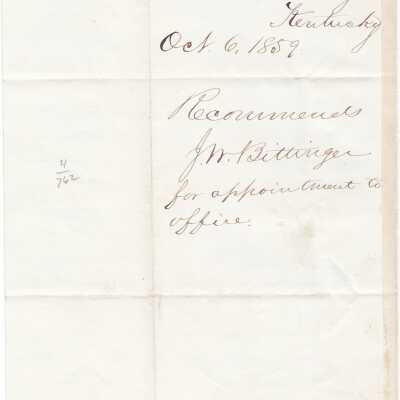 Kentucky
Oct. 6, 1859
Recommends
J. W. Bittinger
for appointment to
office.
4
762